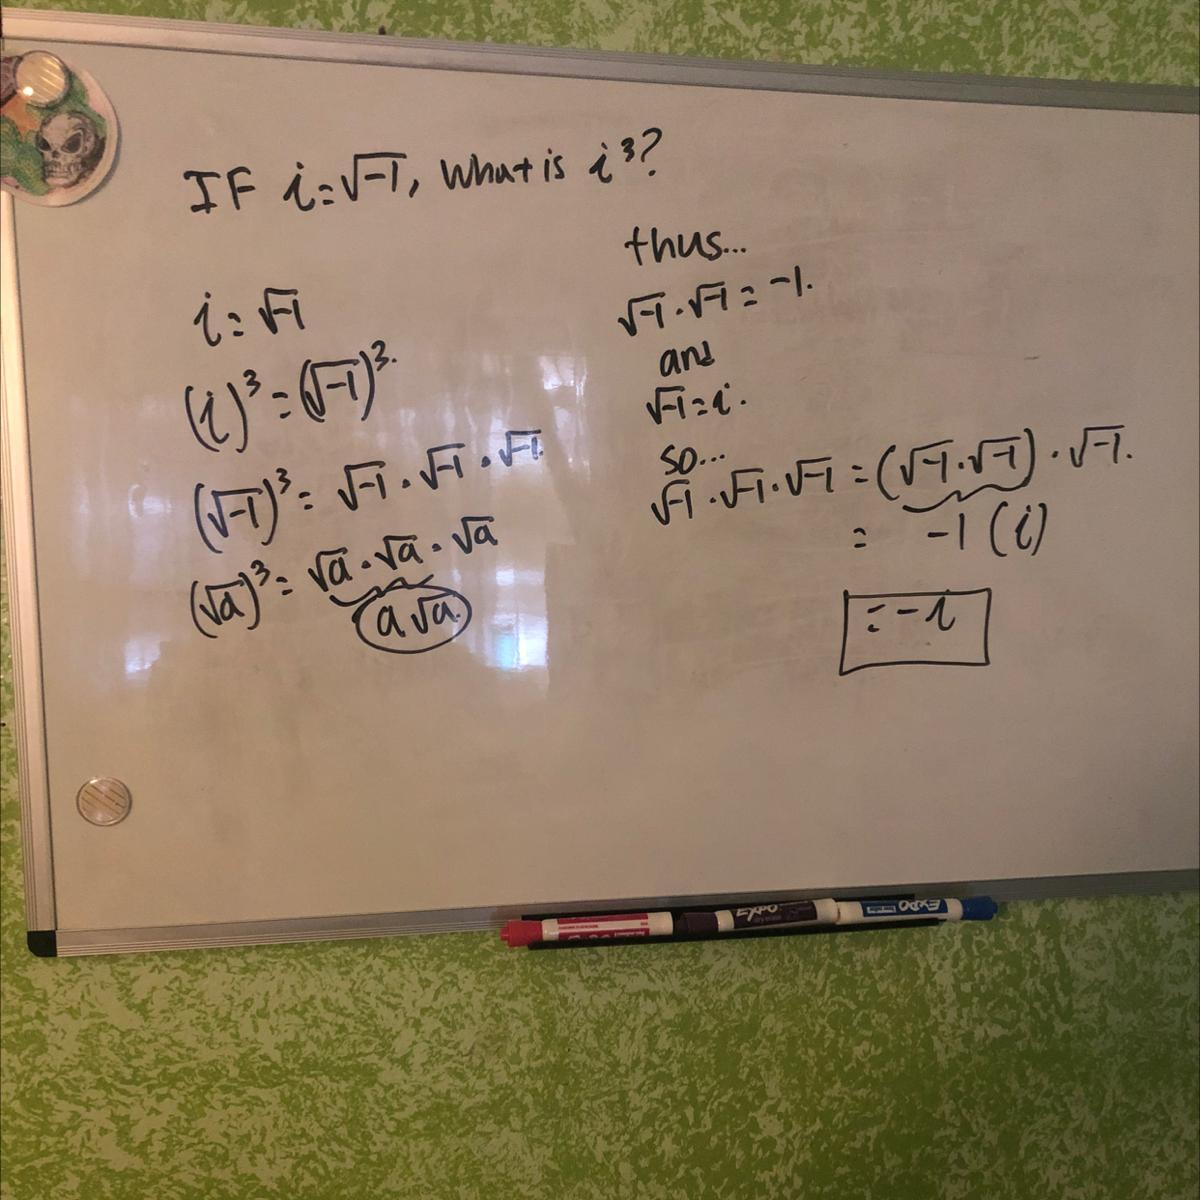 IF i=√-1, What is i³?
i=√-1
(i)³=(√-1)³.
(√-1)³= √-1 · √-1 · √-1.
(√a)³= √a · √a · √a
a√a.
thus...
√-1 · √-1 = -1.
and
√-1 = i.
so...
√-1 · √-1 · √-1 = (√-1 · √-1) · √-1.
= -1 (i)
= -i
EXPO
EXPO